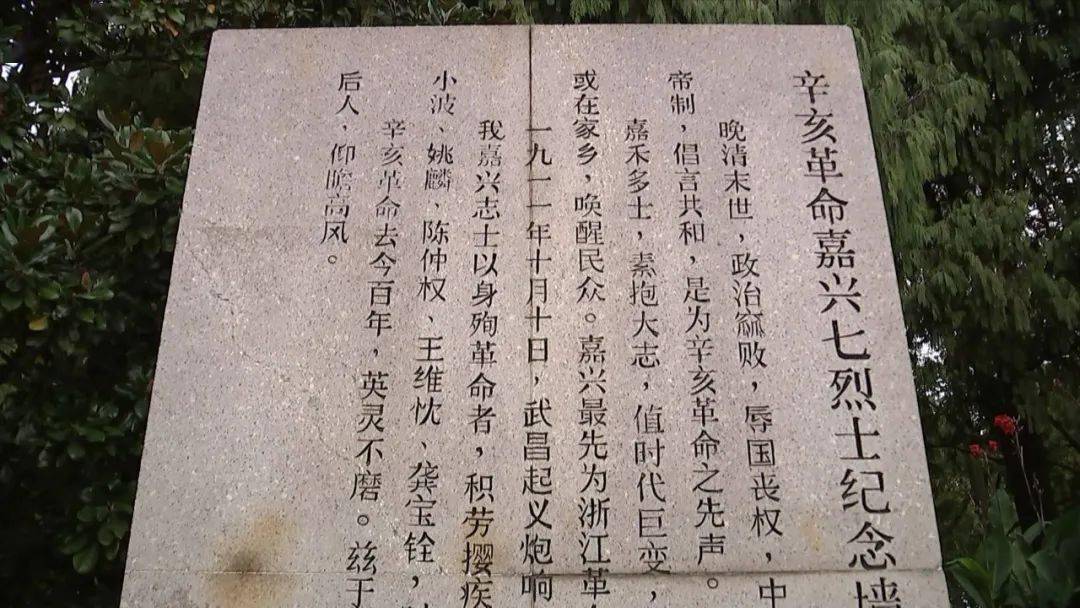 辛亥革命嘉兴七烈士纪念墙
晚清末世，政治窳败，辱国丧权，中
帝制，倡言共和，是为辛亥革命之先声。
嘉禾多士，素抱大志，值时代巨变，
或在家乡，唤醒民众。嘉兴最先为浙江革
一九一一年十月十日，武昌起义炮响
我嘉兴志士以身殉革命者，积劳撄疾
小波、姚麟、陈仲权、王维忱、龚宝铨，
辛亥革命去今百年，英灵不磨。兹于
后人，仰瞻高风。